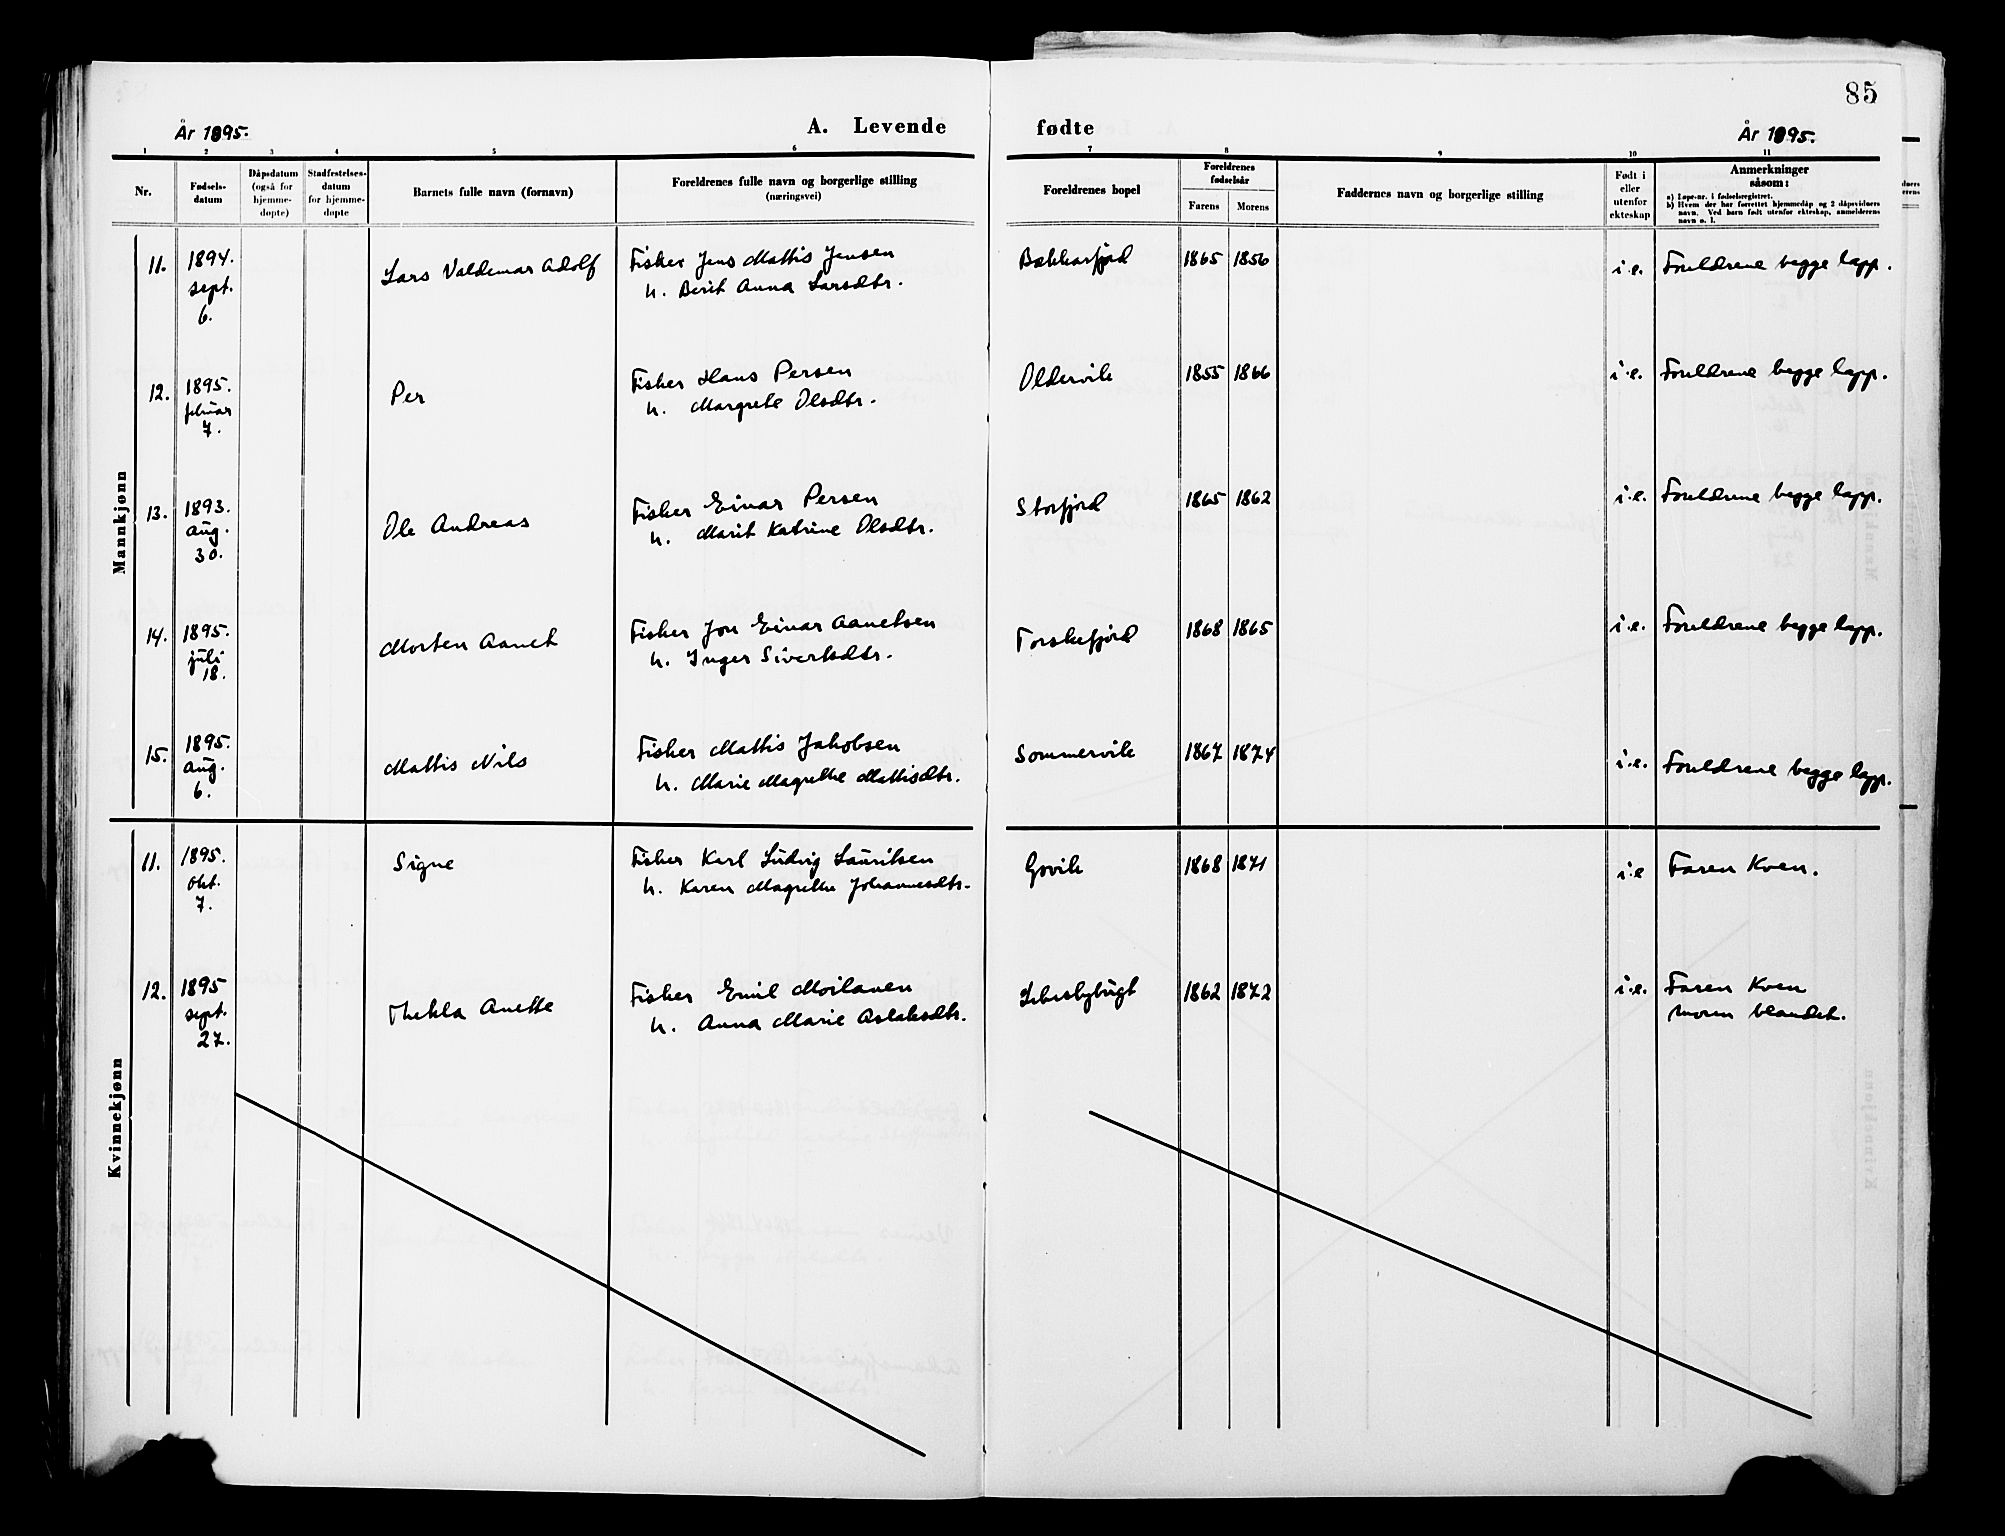 85
År 1895.
A. Levende
fødte
År 1895.
1 2 3 4 5 6 7 8 9 10 11
Nr.
Fødsels-
datum
Dåpsdatum
(også for
hjemme-
døpte)
Stadfestelses-
datum
for hjemme-
døpte
Barnets fulle navn (fornavn)
Foreldrenes fulle navn og borgerlige stilling
(næringsvei)
Foreldrenes bopel
Foreldrenes
fødselsår
Farens Morens
Faddernes navn og borgerlige stilling
Født i
eller
utenfor
ekteskap
Anmerkninger
såsom:
a) Løpe-nr. i fødselsregistret.
b) Hvem der har forrettet hjemmedåp og 2 dåpsvidners
navn. Ved barn født utenfor ekteskap, anmelderens
navn o. l.
Mannkjønn
11. 1894. sept. 6. Lars Valdemar Adolf Fisker Jens Mattis Jensen
h. Berit Anna Larsdtr. Bekkarfjord 1865 1856 i.e. Foreldrene begge lapp.
12. 1895. februar 7. Per Fisker Hans Persen
h. Margrete Olsdtr. Oldervik 1855 1866 i.e. Foreldrene begge lapp.
13. 1893. Aug. 30. Ole Andreas Fisker Einar Persen
h. Marit Katrine Olsdtr. Storfjord 1865 1862 i.e. Foreldrene begge lapp.
14. 1895. juli 18. Morten Aanet Fisker Jon Einar Aanetsen
h. Inger Sivertsdtr. Torskefjord 1868 1865 i.e. Foreldrene begge lapp.
15. 1895. Aug. 6. Mattis Nils Fisker Mattis Jakobsen
h. Marie Magrethe Mattisdtr. Sommervik 1867 1874 i.e. Foreldrene begge lapp.
Kvinnekjønn
11. 1895. Okt. 7. Signe Fisker Karl Ludvig Lauritsen
h. Karen Magrethe Johannesdtr. Govik 1868 1871 i.e Faren Kven.
12. 1895 sept. 27. Thekla Anette Fisker Emil Moilanen
h. Anna Marie Aslaksdtr. Lebesbybugt 1862 1872 i.e. Faren Kven
moren blandet.